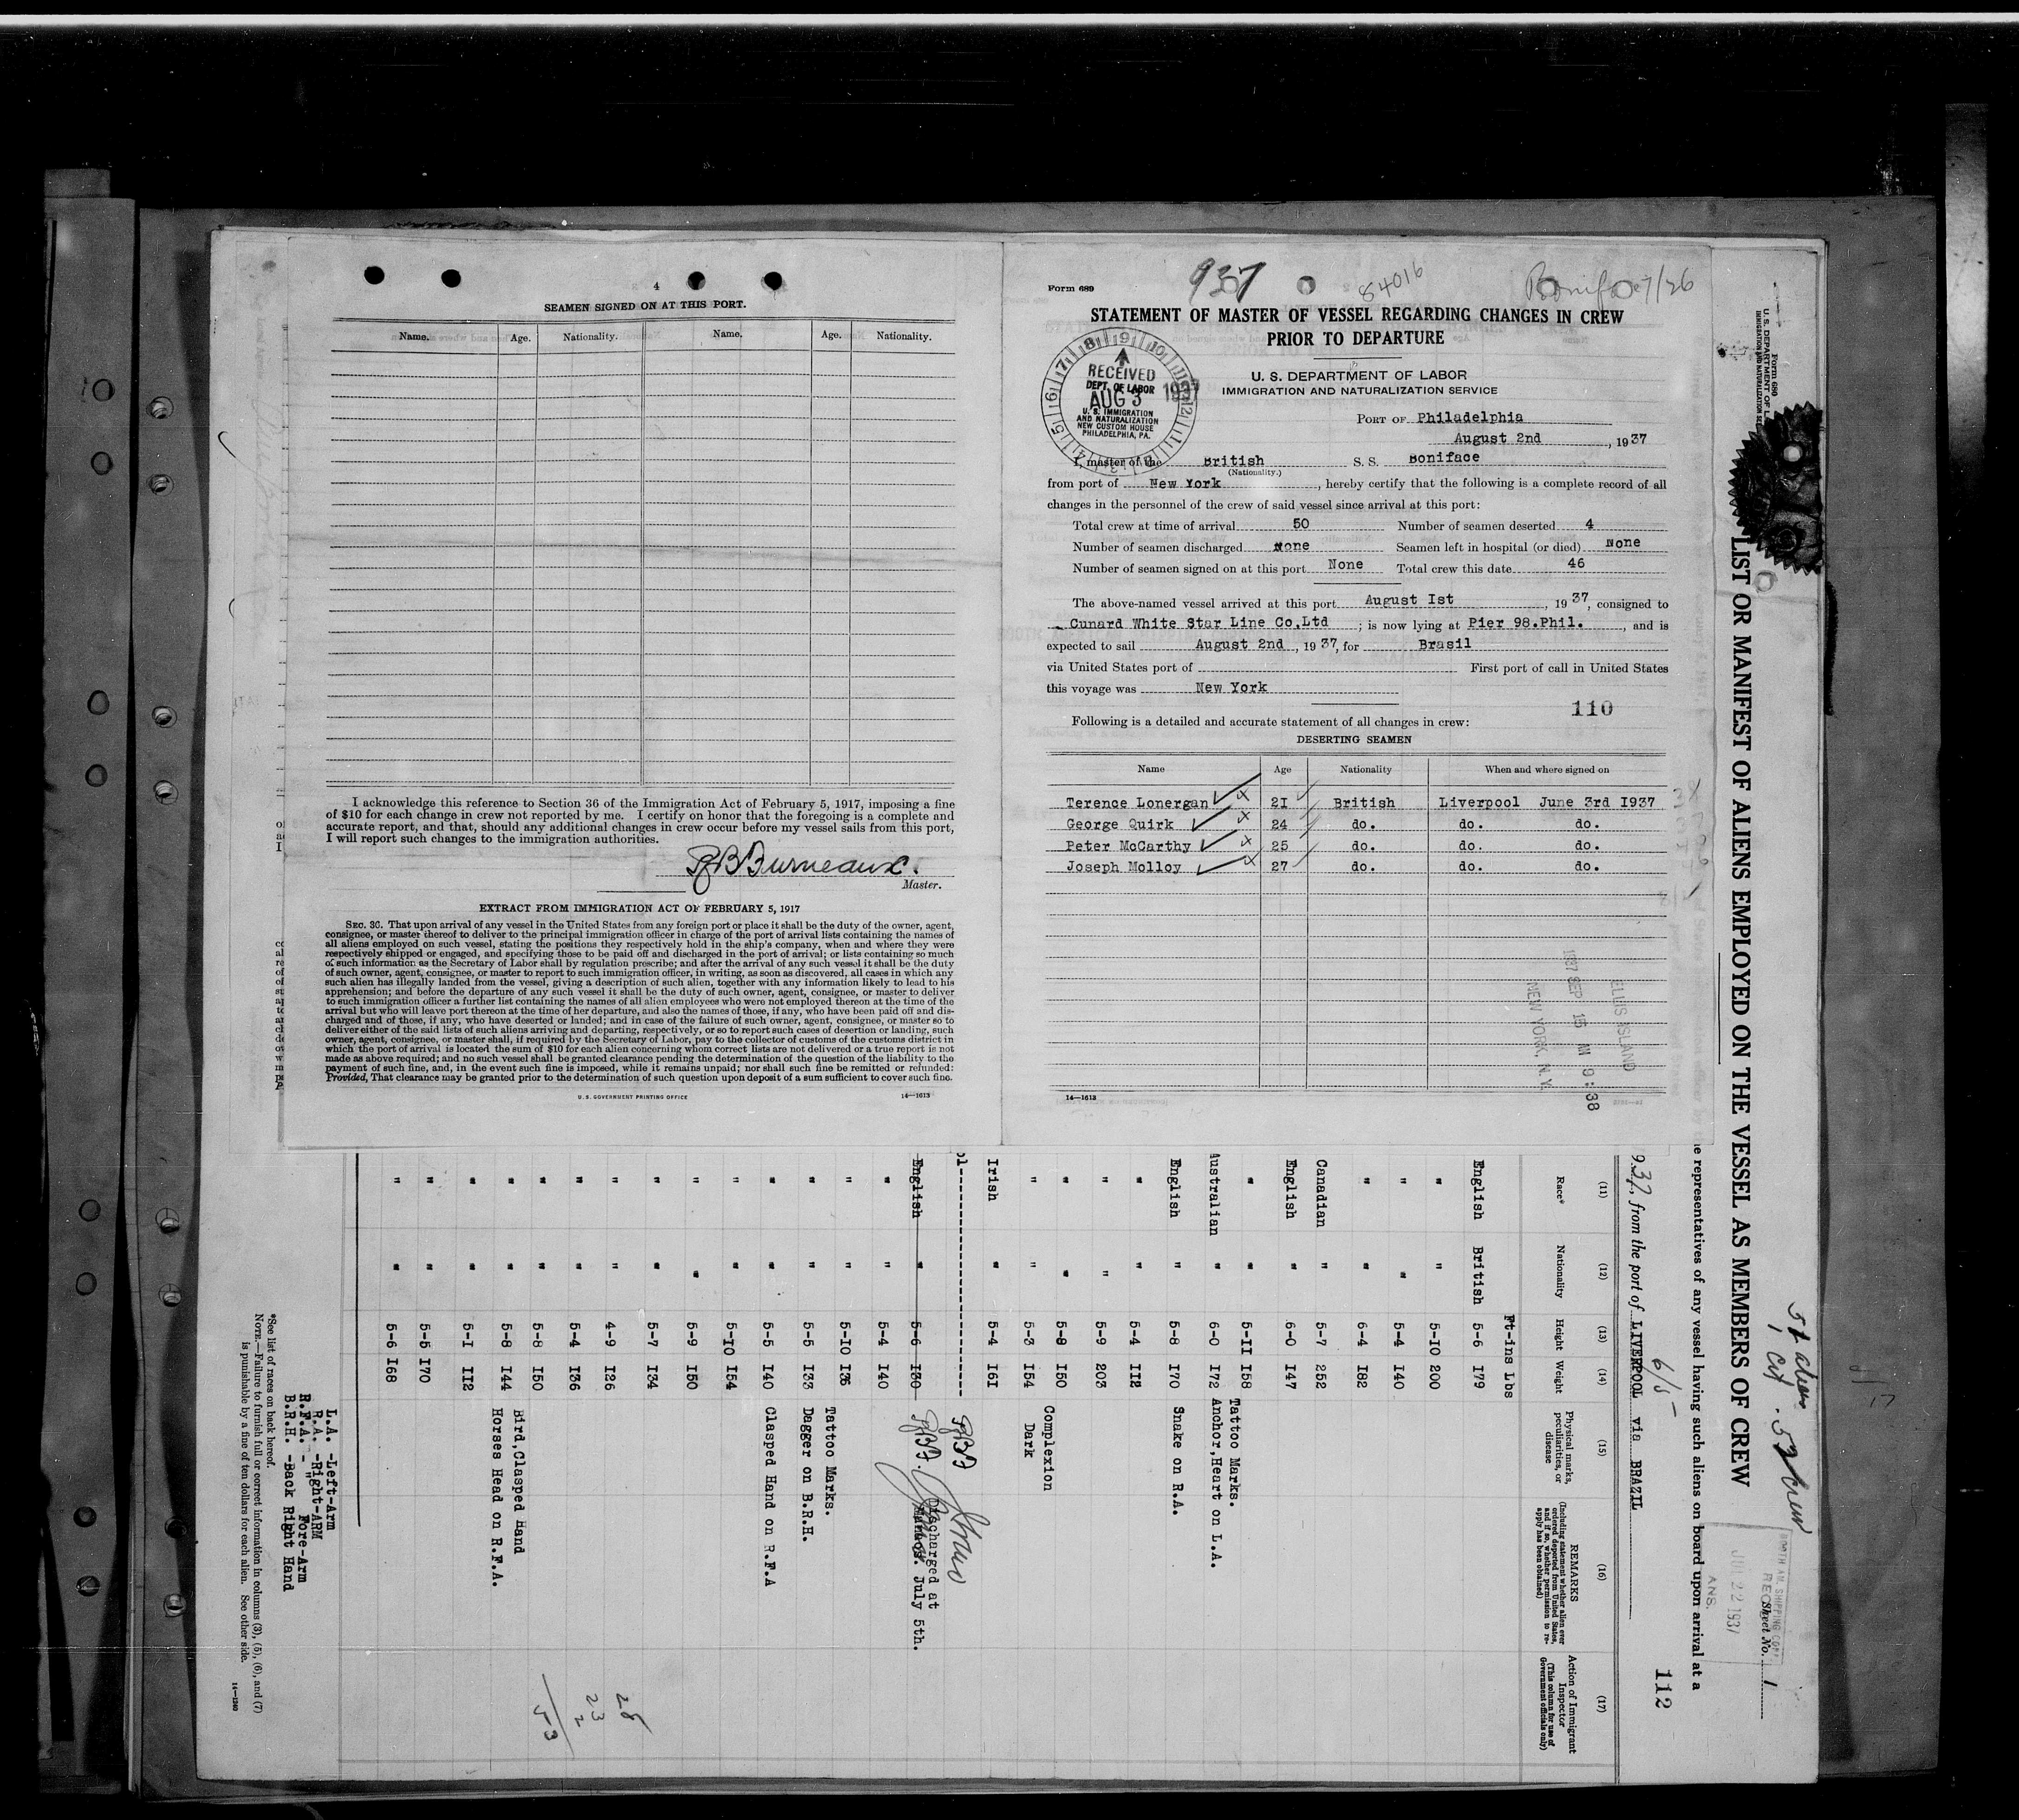 4
SEAMEN SIGNED ON AT THIS PORT.
Name. Age. Nationality. Name. Age. Nationality.
I acknowledge this reference to Section 36 of the Immigration Act of February 5, 1917, imposing a fine
of $10 for each change in crew not reported by me. I certify on honor that the foregoing is a complete and
accurate report, and that, should any additional changes in crew occur before my vessel sails from this port,
I will report such changes to the immigration authorities.
Master.
EXTRACT FROM IMMIGRATION ACT OF FEBRUARY 5, 1917
SEC. 36. That upon arrival of any vessel in the United States from any foreign port or place it shall be the duty of the owner, agent,
consignee, or master thereof to deliver to the principal immigration officer in charge of the port of arrival lists containing the names of
all aliens employed on such vessel, stating the positions they respectively hold in the ship's company, when and where they were
respectively shipped or engaged, and specifying those to be paid off and discharged in the port of arrival; or lists containing so much
of such information as the Secretary of Labor shall by regulation prescribe; and after the arrival of any such vessel it shall be the duty
of such owner, agent, consignee, or master to report to such immigration officer, in writing, as soon as discovered, all cases in which any
such alien has illegally landed from the vessel, giving a description of such alien, together with any information likely to lead to his
apprehension; and before the departure of any such vessel it shall be the duty of such owner, agent, consignee, or master to deliver
to such immigration officer a further list containing the names of all alien employees who were not employed thereon at the time of the
arrival but who will leave port thereon at the time of her departure, and also the names of those, if any, who have been paid off and dis-
charged and of those, if any, who have deserted or landed; and in case of the failure of such owner, agent, consignee, or master so to
deliver either of the said lists of such aliens arriving and departing, respectively, or so to report such cases of desertion or landing, such
owner, agent, consignee, or master shall, if required by the Secretary of Labor, pay to the collector of customs of the customs district in
which the port of arrival is located the sum of $10 for each alien concerning whom correct lists are not delivered or a true report is not
made as above required; and no such vessel shall be granted clearance pending the determination of the question of the liability to the
payment of such fine, and, in the event such fine is imposed, while it remains unpaid; nor shall such fine be remitted or refunded:
Provided, That clearance may be granted prior to the determination of such question upon deposit of a sum sufficient to cover such fine.
U. S. GOVERNMENT PRINTING OFFICE 14—1613
Form 689
937
84016
7/26
STATEMENT OF MASTER OF VESSEL REGARDING CHANGES IN CREW
PRIOR TO DEPARTURE
U. S. DEPARTMENT OF LABOR
IMMIGRATION AND NATURALIZATION SERVICE
RECEIVED
DEPT. OF LABOR
AUG 3 1937
U. S. IMMIGRATION
AND NATURALIZATION
NEW CUSTOM HOUSE
PHILADELPHIA, PA.
PORT OF Philadelphia
August 2nd, 1937
I, master of the British S. S. Boniface
(Nationality.)
from port of New York, hereby certify that the following is a complete record of all
changes in the personnel of the crew of said vessel since arrival at this port:
Total crew at time of arrival 50 Number of seamen deserted 4
Number of seamen discharged None Seamen left in hospital (or died) None
Number of seamen signed on at this port None Total crew this date 46
The above-named vessel arrived at this port August Ist, 1937, consigned to
Cunard White Star Line Co.Ltd ; is now lying at Pier 98.Phil. , and is
expected to sail August 2nd, 1937, for Brasil
via United States port of First port of call in United States
this voyage was New York
110
Following is a detailed and accurate statement of all changes in crew:
DESERTING SEAMEN
Name Age Nationality When and where signed on
Terence Lonergan 2I British Liverpool June 3rd I937
George Quirk 24 do. do. do.
Peter McCarthy 25 do. do. do.
Joseph Molloy 27 do. do. do.
ELLIS ISLAND
1937 SEP 15 AM 9:38
NEW YORK, N.Y.
14—1613
Form 689
LIST OR MANIFEST OF ALIENS EMPLOYED ON THE VESSEL AS MEMBERS OF CREW
Sheet No. 1
representatives of any vessel having such aliens on board upon arrival at a
937, from the port of LIVERPOOL via BRAZIL
112
(11) (12) (13) (14) (15) (16) (17)
Race* Nationality Height Weight Physical marks, peculiarities, or disease REMARKS (Including statement whether alien ever ordered deported from United States, and if so, whether permission to reapply has been obtained) Action of Immigrant Inspector (This column for use of Government officials only)
Ft-ins Lbs
English British 5-6 I79
" " 5-I0 200
" " 5-4 I40
" " 6-4 I82
Canadian " 5-7 252
English " 6-0 I47
" " 5-II I58 Tattoo Marks.
Australian " 6-0 I72 Anchor,Heart on L.A.
English " 5-8 I70 Snake on R.A.
" " 5-4 II2
" " 5-9 203
" " 5-8 I50 Complexion
" " 5-3 I54 Dark
Irish " 5-4 I6I
English " 5-6 I30 Discharged at
July 5th.
" " 5-4 I40
" " 5-I0 I35 Tattoo Marks.
" " 5-5 I33 Dagger on B.R.H.
" " 5-5 I40 Clasped Hand on R.F.A
" " 5-I0 I54
" " 5-9 I50
" " 5-7 I34
" " 4-9 I26
" " 5-4 I36
" " 5-8 I50 Bird,Clasped Hand
" " 5-8 I44 Horses Head on R.F.A.
" " 5-I II2
" " 5-5 I70
" " 5-6 I68
28
23
2
53
L.A. -Left-Arm
R.A. -Right-ARM
R.F.A. - " Fore-Arm
B.R.H. -Back Right Hand
*See list of races on back hereof.
NOTE.—Failure to furnish full or correct information in columns (3), (5), (6), and (7)
is punishable by a fine of ten dollars for each alien. See other side.
14—1240